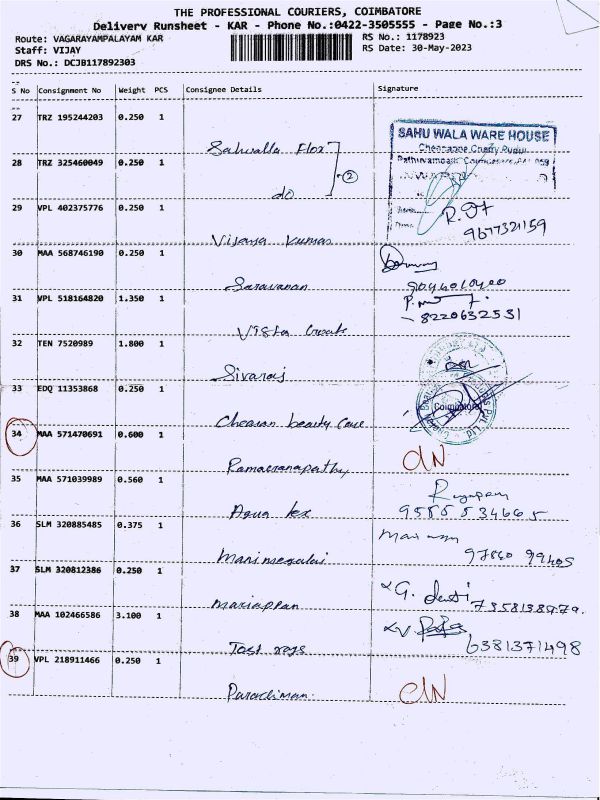 THE PROFESSIONAL COURIERS, COIMBATORE
Delivery Runsheet - KAR - Phone No.:0422-3505555 - Page No.:3
Route: VAGARAYAMPALAYAM KAR
RS No.: 1178923
Staff: VIJAY
RS Date: 30-May-2023
DRS No.: DCJB117892303
S No Consignment No Weight PCS Consignee Details Signature
27 TRZ 195244203 0.250 1
SAHU WALA WARE HOUSE
28 TRZ 325460049 0.250 1
do
2
29 VPL 402375776 0.250 1
9677321159
Vijaya Kumar
30 MAA 568746190 0.250 1
Saravanan
31 VPL 518164820 1.350 1
8220632531
32 TEN 7520989 1.800 1
Sivaraj
33 EDQ 11353868 0.250 1
Coimbatore
34 MAA 571470691 0.600 1
DN
35 MAA 571039989 0.560 1
Aqua tex
36 SLM 320885485 0.375 1
Manimegalai
37 SLM 320812386 0.250 1
Mariappan
38 MAA 102466586 3.100 1
6381371498
39 VPL 218911466 0.250 1
DN